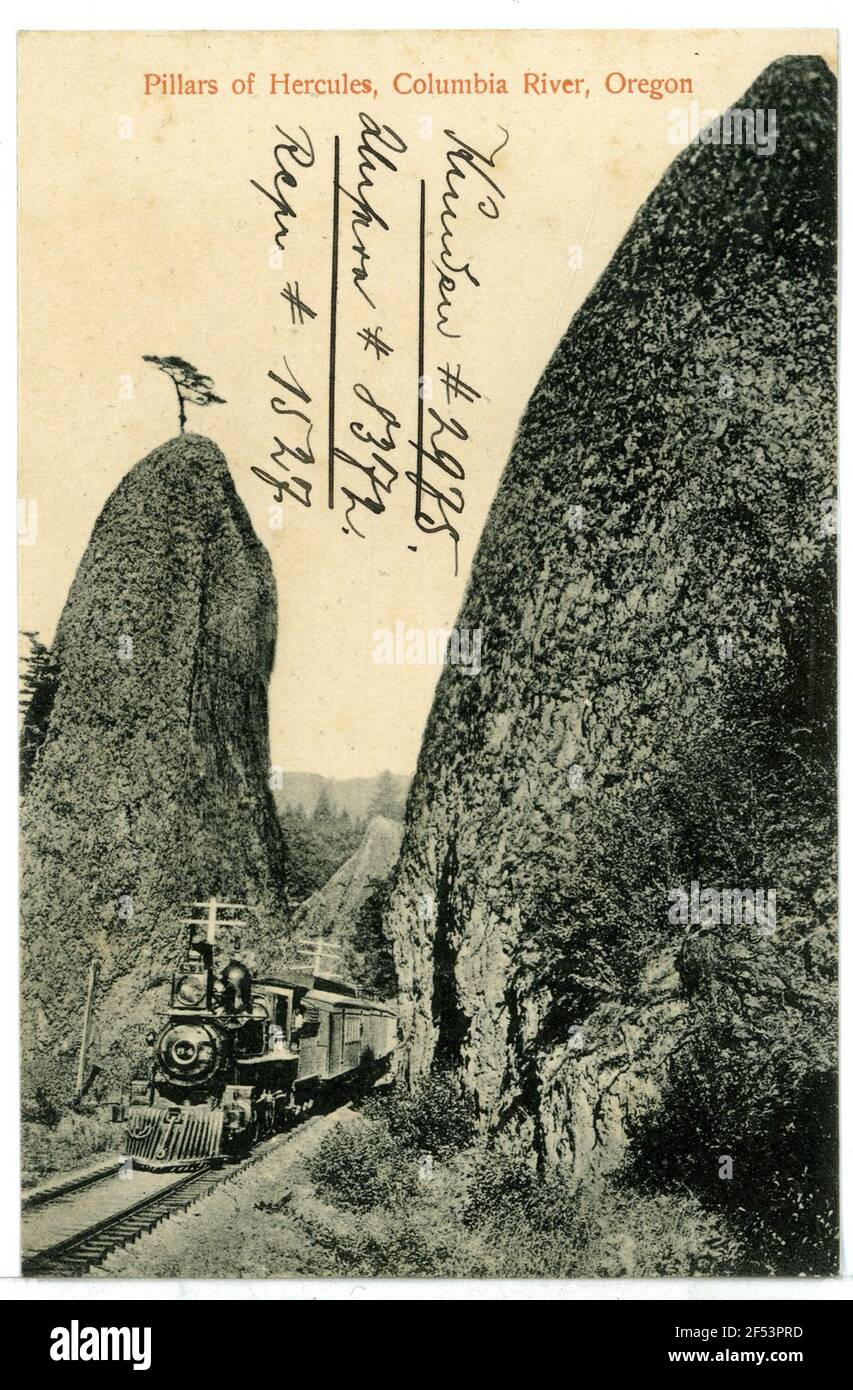 Pillars of Hercules, Columbia River, Oregon
Kunden # 2975.
# 8372.
Repr # 1527
alamy
Image ID: 2F53PRD
www.alamy.com